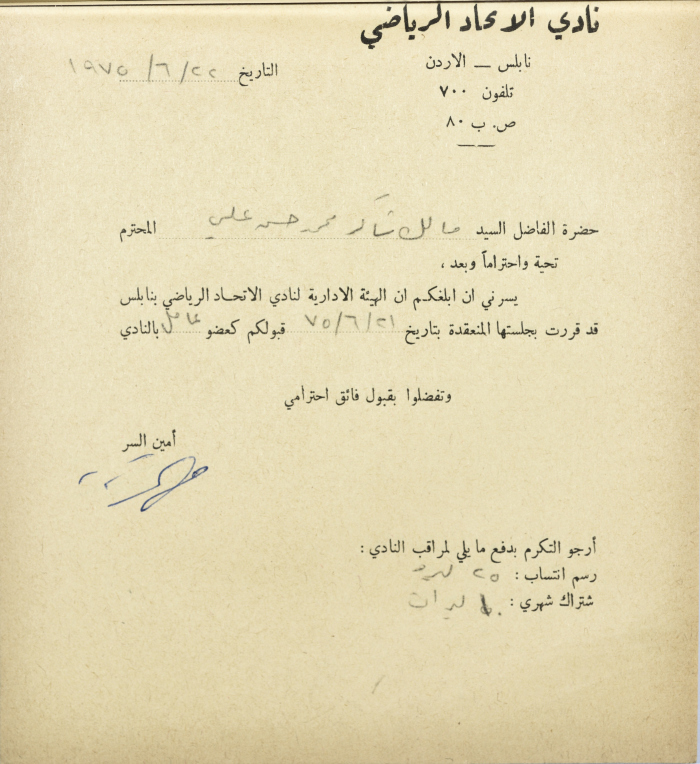 نادي الاتحاد الرياضي
نابلس — الاردن
تلفون ٧٠٠
ص. ب ٨٠
التاريخ ٢٢/٦/١٩٧٥
حضرة الفاضل السيد مالك شاكر محمد حسن علي المحترم
تحية واحتراماً وبعد ،
يسرني ان ابلغكم ان الهيئة الادارية لنادي الاتحاد الرياضي بنابلس
قد قررت بجلستها المنعقدة بتاريخ ٢١/٦/٧٥ قبولكم كعضو عامل بالنادي
وتفضلوا بقبول فائق احترامي
أمين السر
أرجو التكرم بدفع ما يلي لمراقب النادي :
رسم انتساب : ٢٥ ليرة
شتراك شهري : ليرات